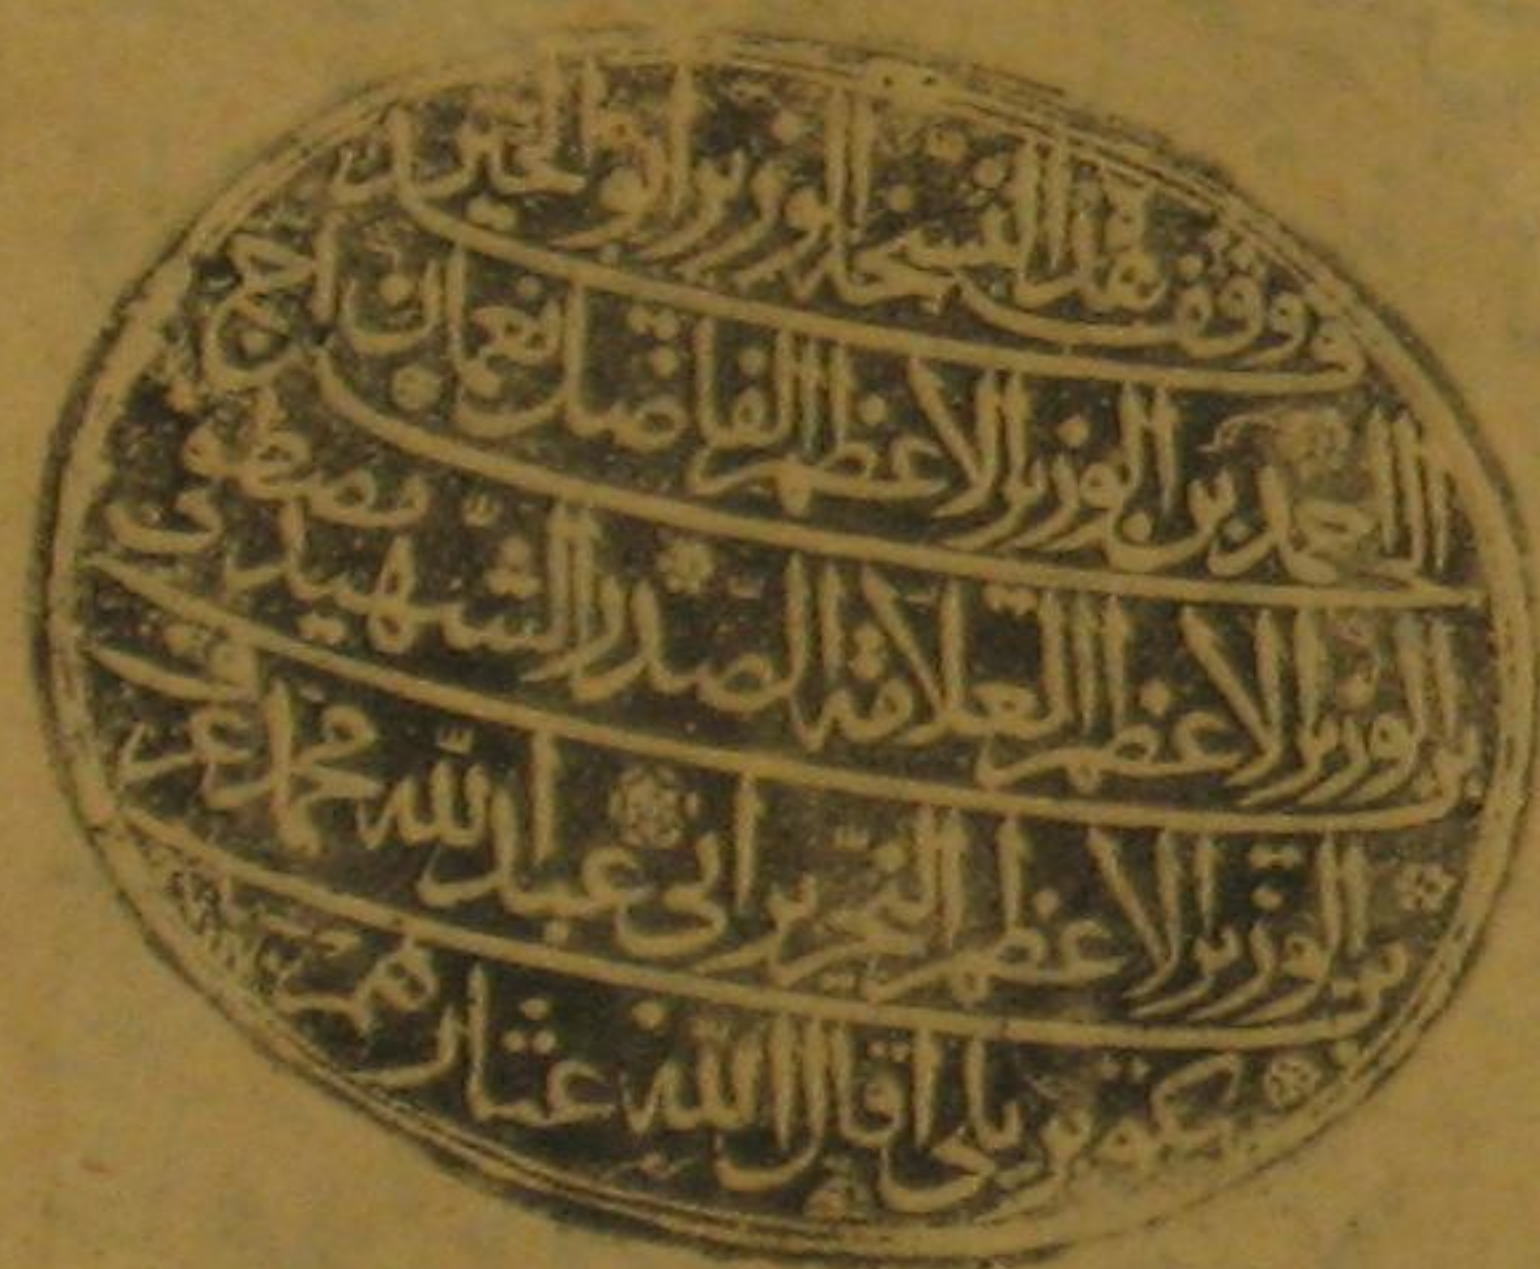 وقف هذا النسخة الوزير ابو الخير ا
لحاج احمد بن الوزير الاعظم الفاضل نعمان
بن الوزير الاعظم العلامة الصدر الشهيد مصطفى
بن الوزير الاعظم النحرير ابي عبد الله محمد عرف
بكوپريلي اقال الله عثارهم